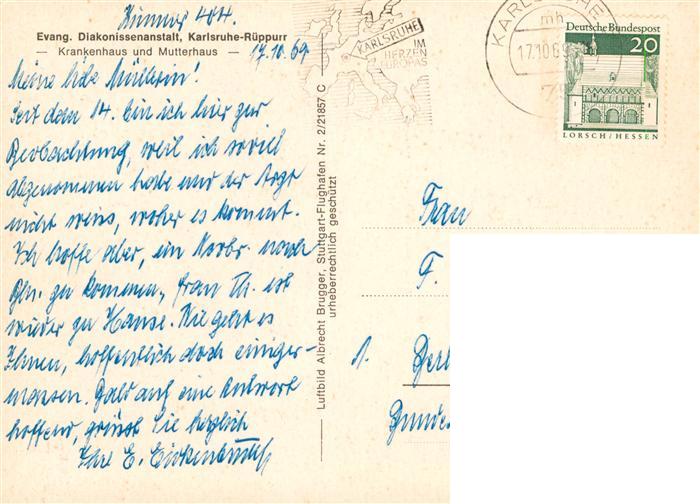 Zimmer 404.
Evang. Diakonissenanstalt, Karlsruhe-Rüppurr
— Krankenhaus und Mutterhaus —
17.10.69
Meine liebe Müllerin!
Seit dem 14. bin ich hier zur
Beobachtung, weil ich soviel
abgenommen habe und der Arzt
nicht weiss, woher es kommt.
Ich hoffe aber, im Novbr. nach
Bln. zu kommen, Frau Th. ist
wieder zu Hause. Wie geht es
Ihnen, hoffentlich doch einiger-
massen. Bald auf eine Antwort
hoffend, grüsst Sie herzlich
Ihre E.
Luftbild Albrecht Brugger, Stuttgart-Flughafen Nr. 2/21857 C
urheberrechtlich geschützt
KARLSRUHE
IM
HERZEN
EUROPAS
KARLSRUHE
mh
17.10.6
Deutsche Bundespost
20
LORSCH/HESSEN
Frau
F.
1. Berl
Bundes